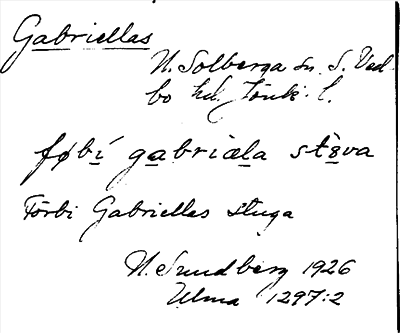 Gabriellas
N. Solberga sn. S. Ved-
bo hd. Jönk. l.
føbí gabriæla stɜva
Förbi Gabriellas stuga
N. Sundberg 1926
Ulma 1297:2